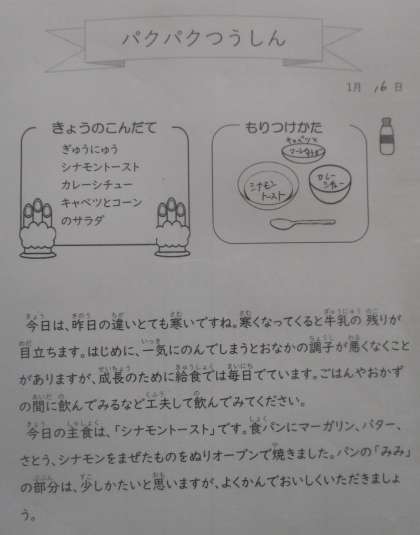 パクパクつうしん
1月 16 日
きょうのこんだて
ぎゅうにゅう
シナモントースト
カレーシチュー
キャベツとコーン
のサラダ
もりつけかた
キャベツと
コーンのサラダ
シナモン
トースト
カレー
シチュー
今日は、昨日の違いとても寒いですね。寒くなってくると牛乳の残りが
目立ちます。はじめに、一気にのんでしまうとおなかの調子が悪くなくこと
がありますが、成長のために給食では毎日でています。ごはんやおかず
の間に飲んでみるなど工夫して飲んでみてください。
今日の主食は、「シナモントースト」です。食パンにマーガリン、バター、
さとう、シナモンをまぜたものをぬりオーブンで焼きました。パンの「みみ」
の部分は、少しかたいと思いますが、よくかんでおいしくいただきましょ
う。